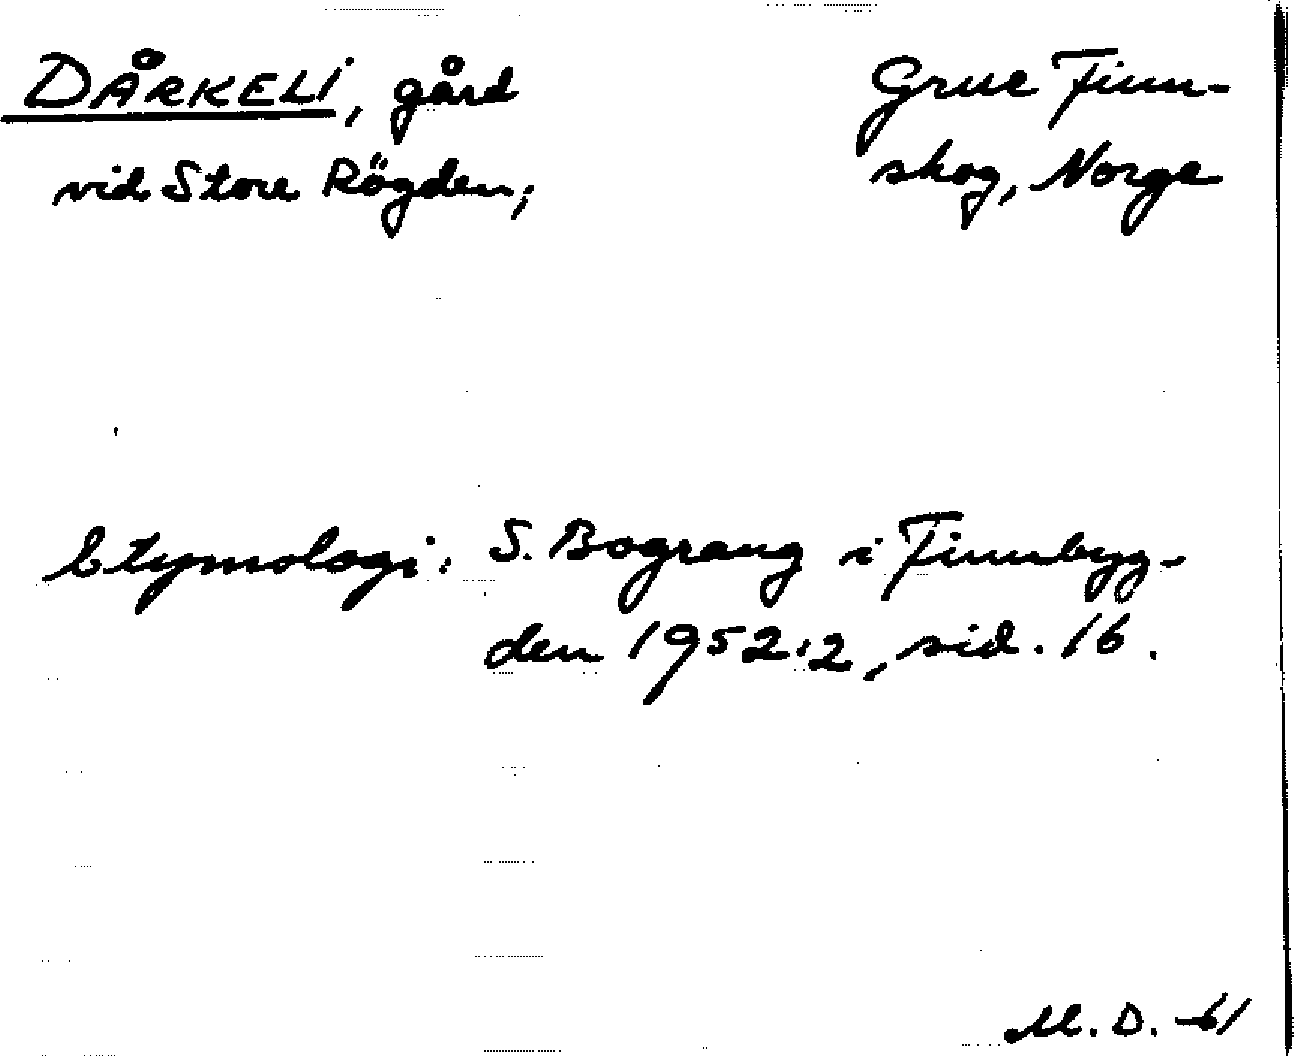 DÅRKELI, gård
vid Store Rögden;
Grue Finn-
skog, Norge
Etymologi: S. Bograng i Finnbyg-
den 1952:2, sid. 16.
M. D. -61